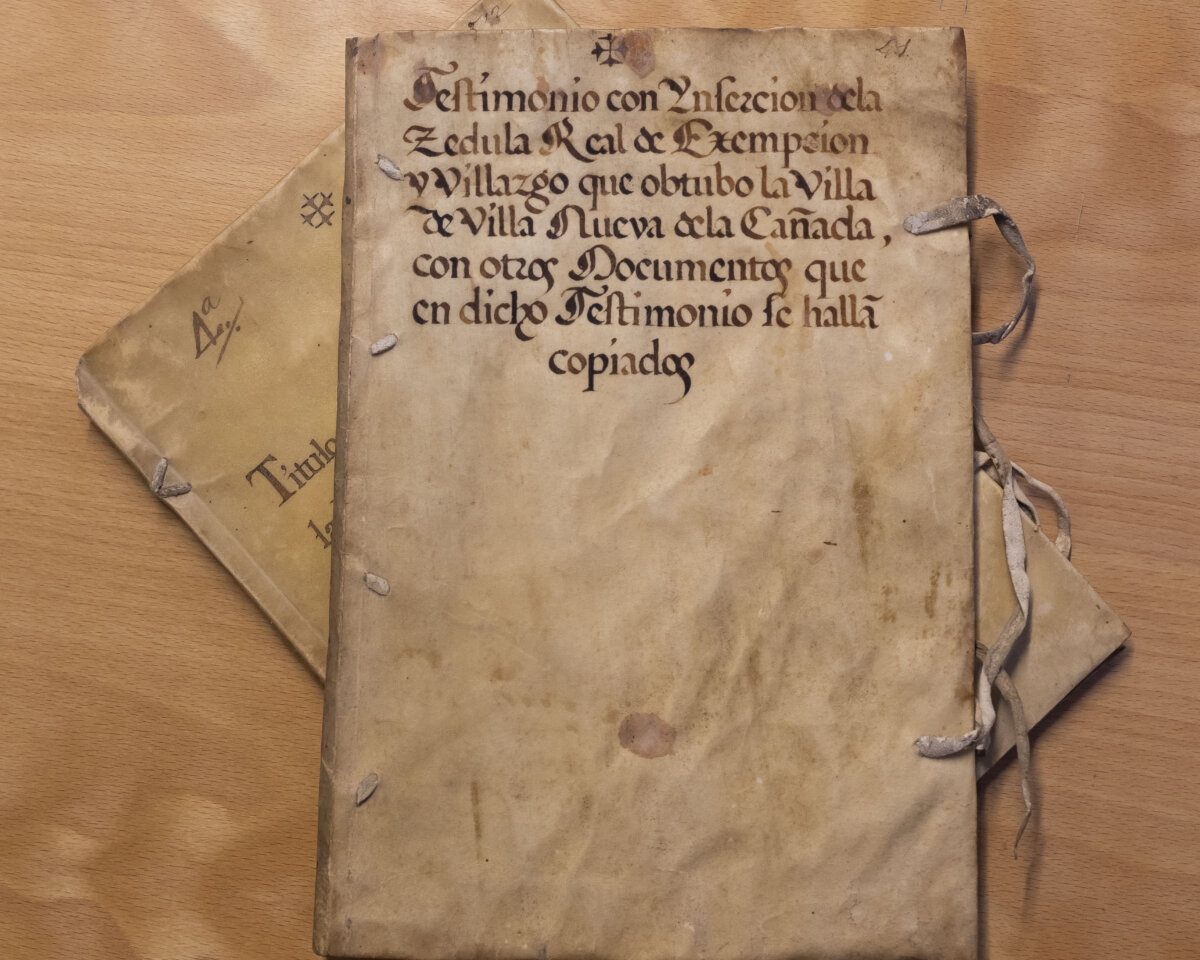 Testimonio con Ynsercion dela
Zedula Real de Exempcion
y Villazgo que obtubo la Villa
de Villa Nueva dela Cañada,
con otros Documentos que
en dicho Testimonio se hallã
copiados
4ª
Titulo